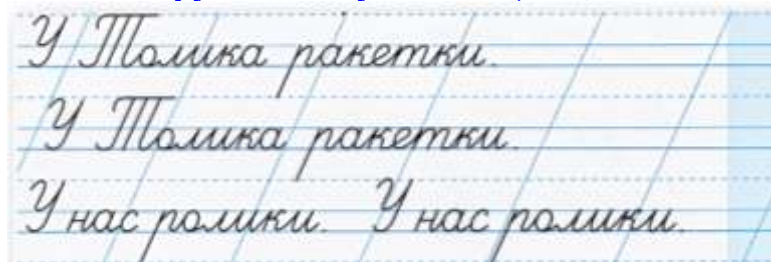 У Толика ракетки.
У Толика ракетки.
У нас ролики. У нас ролики.